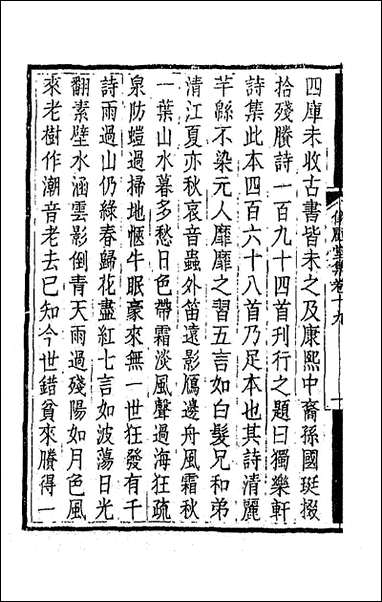 四庫未收古書皆未之及康熙中裔孫國珽掇
拾殘賸詩一百九十四首刊行之題曰獨樂軒
詩集此本四百六十八首乃足本也其詩清麗
芊緜不染元人靡靡之習五言如白髮兄和弟
清江夏亦秋哀音蟲外笛遠影鴈邊舟風霜秋
一葉山水暮多愁日色帶霜淡風聲過海狂疏
泉防螘過掃地愜牛眠豪來無一世狂發有千
詩雨過山仍綠春歸花盡紅七言如波蕩日光
翻素壁水涵雲影倒青天雨過殘陽如月色風
來老樹作潮音老去已知今世錯貧來賸得一
堂集卷十九